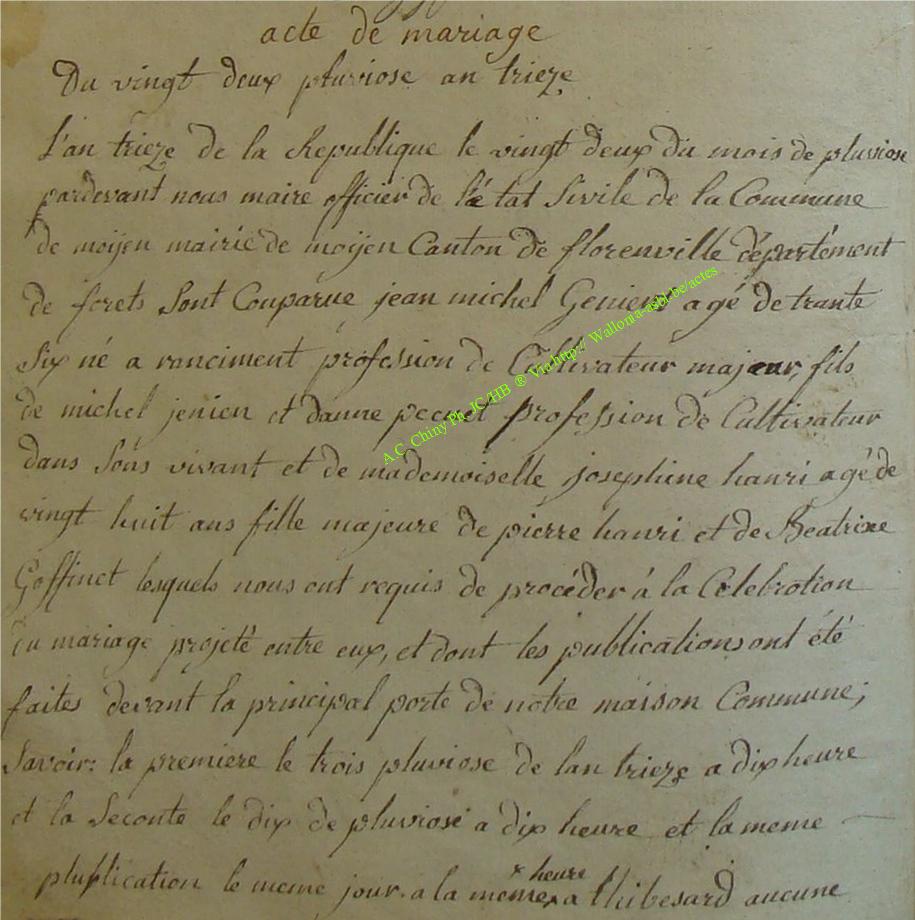 acte de mariage
Du vingt deux pluviose an trieze
L'an trieze de la Republique le vingt deux du mois de pluviose
pardevant nous maire officier de l'état Sivile de la Commune
de moijen mairie de moijen Canton de florenville département
de forets Sont Couparue jean michel Geniens agé de trante
Six né a ranciment profession de Cultivateur majeur, fils
de michel jenien et danne pecuet profession de Cultivateur
dans Sons vivant et de mademoiselle josephine hanri agé de
vingt huit ans fille majeure de pierre hanri et de Beatrixe
Goffinet lesquels nous ont requis de procéder à la Celebration
du mariage projeté entre eux, et dont les publications ont été
faites devant la principal porte de notre maison Commune;
Savoir: la premiere le trois pluviose de lan trieze a dix heure
et la Seconte le dix de pluviose a dix heure et la meme
plublication le meme jour a la meme x heure a thibesard aucune
A.C. Chiny Ph. JC/HB ® Via http:// Wallonia-asbl.be/actes